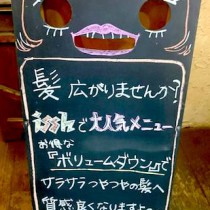 髪 広がりませんか?
で大人気メニュー
お得な
『ボリュームダウン』で
サラサラつやつやの髪へ
質感良くなりますよ〜